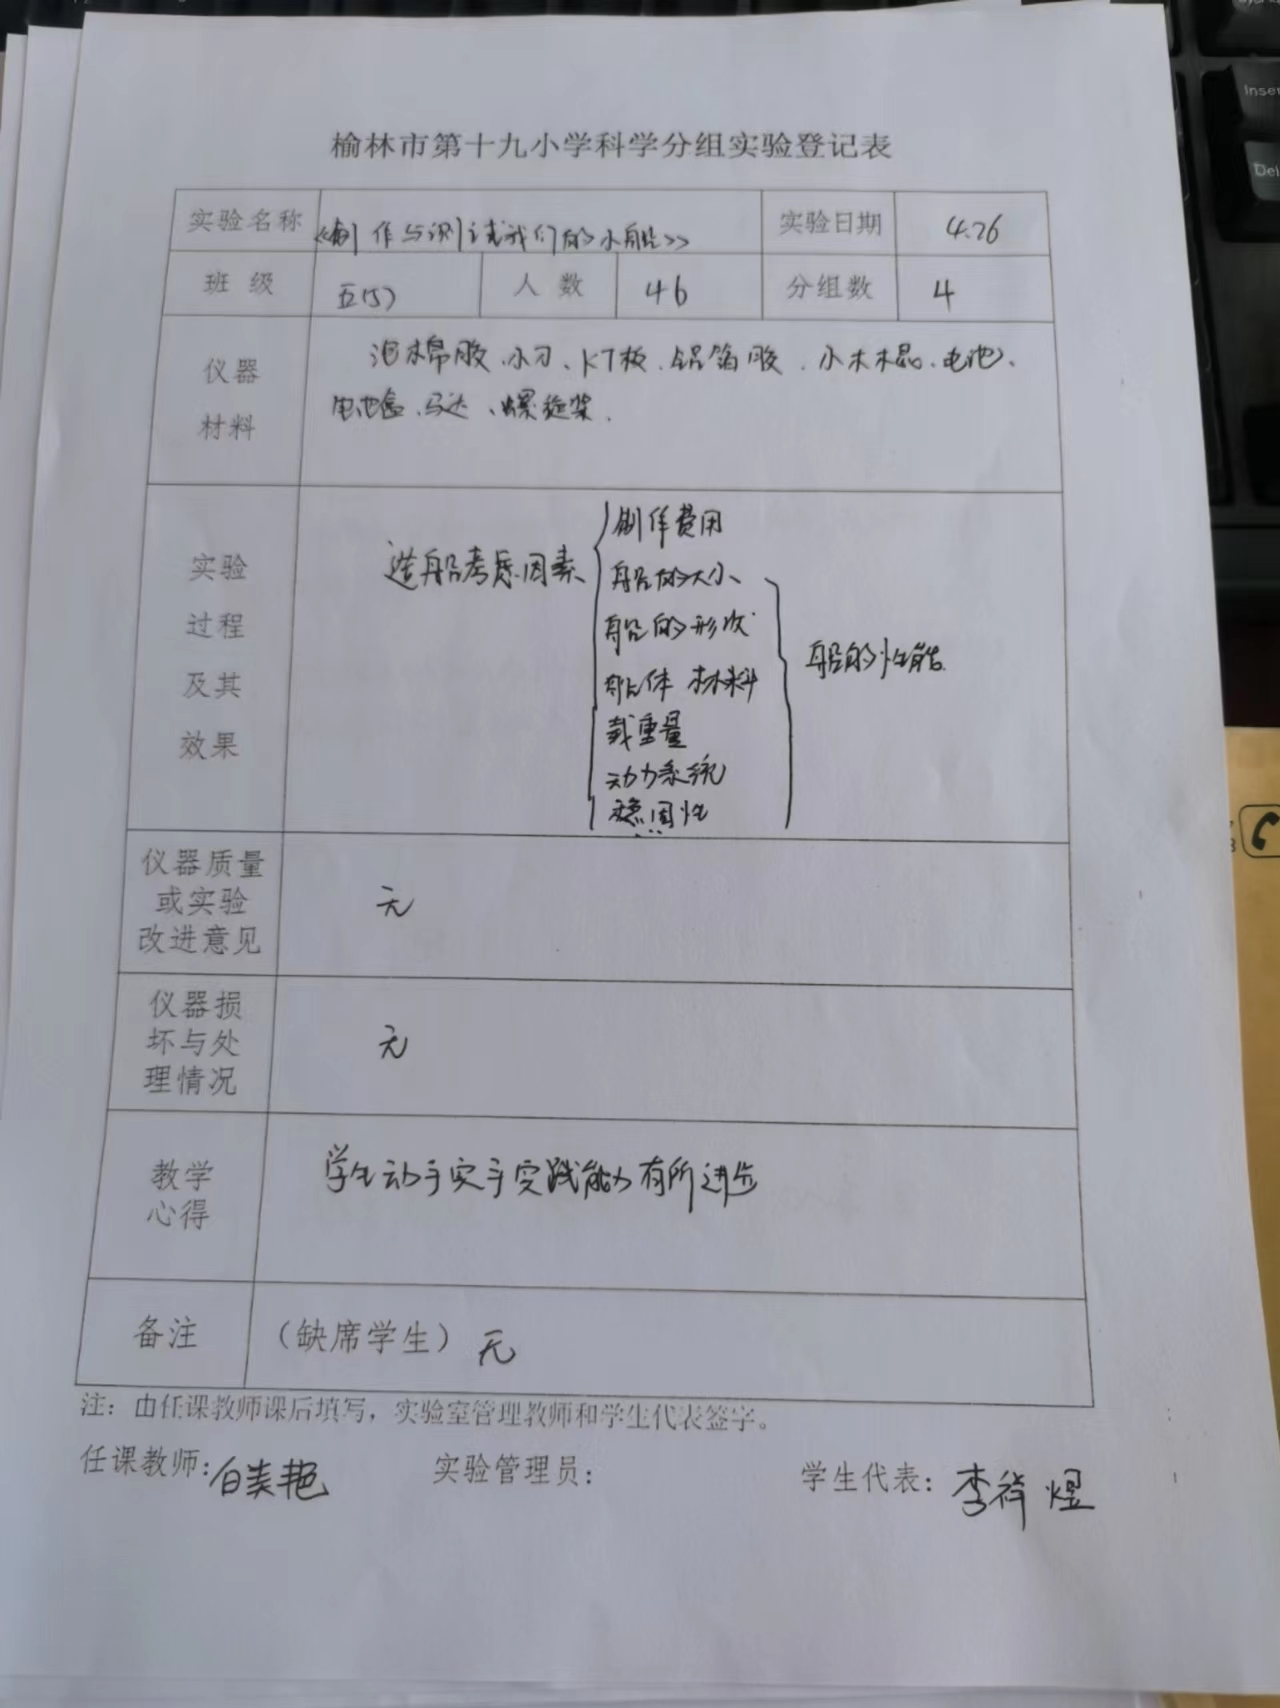 榆林市第十九小学科学分组实验登记表
实验名称 《制作与测试我们的小船》 实验日期 4.26
班级 五(5) 人数 46 分组数 4
仪器材料 泡棉胶、小刀、KT板、铝箔胶、小木棍、电池、
电池盒、马达、螺旋桨.
实验过程及其效果
造船考虑因素
制作费用
船的大小
船的形状
船体材料
载重量
动力系统
稳固性
船的性能
仪器质量或实验改进意见 无
仪器损坏与处理情况 无
教学心得 学生动手实手实践能力有所进步
备注 (缺席学生) 无
注：由任课教师课后填写，实验室管理教师和学生代表签字。
任课教师：白美艳 实验管理员： 学生代表：李 煜
Inse
Del